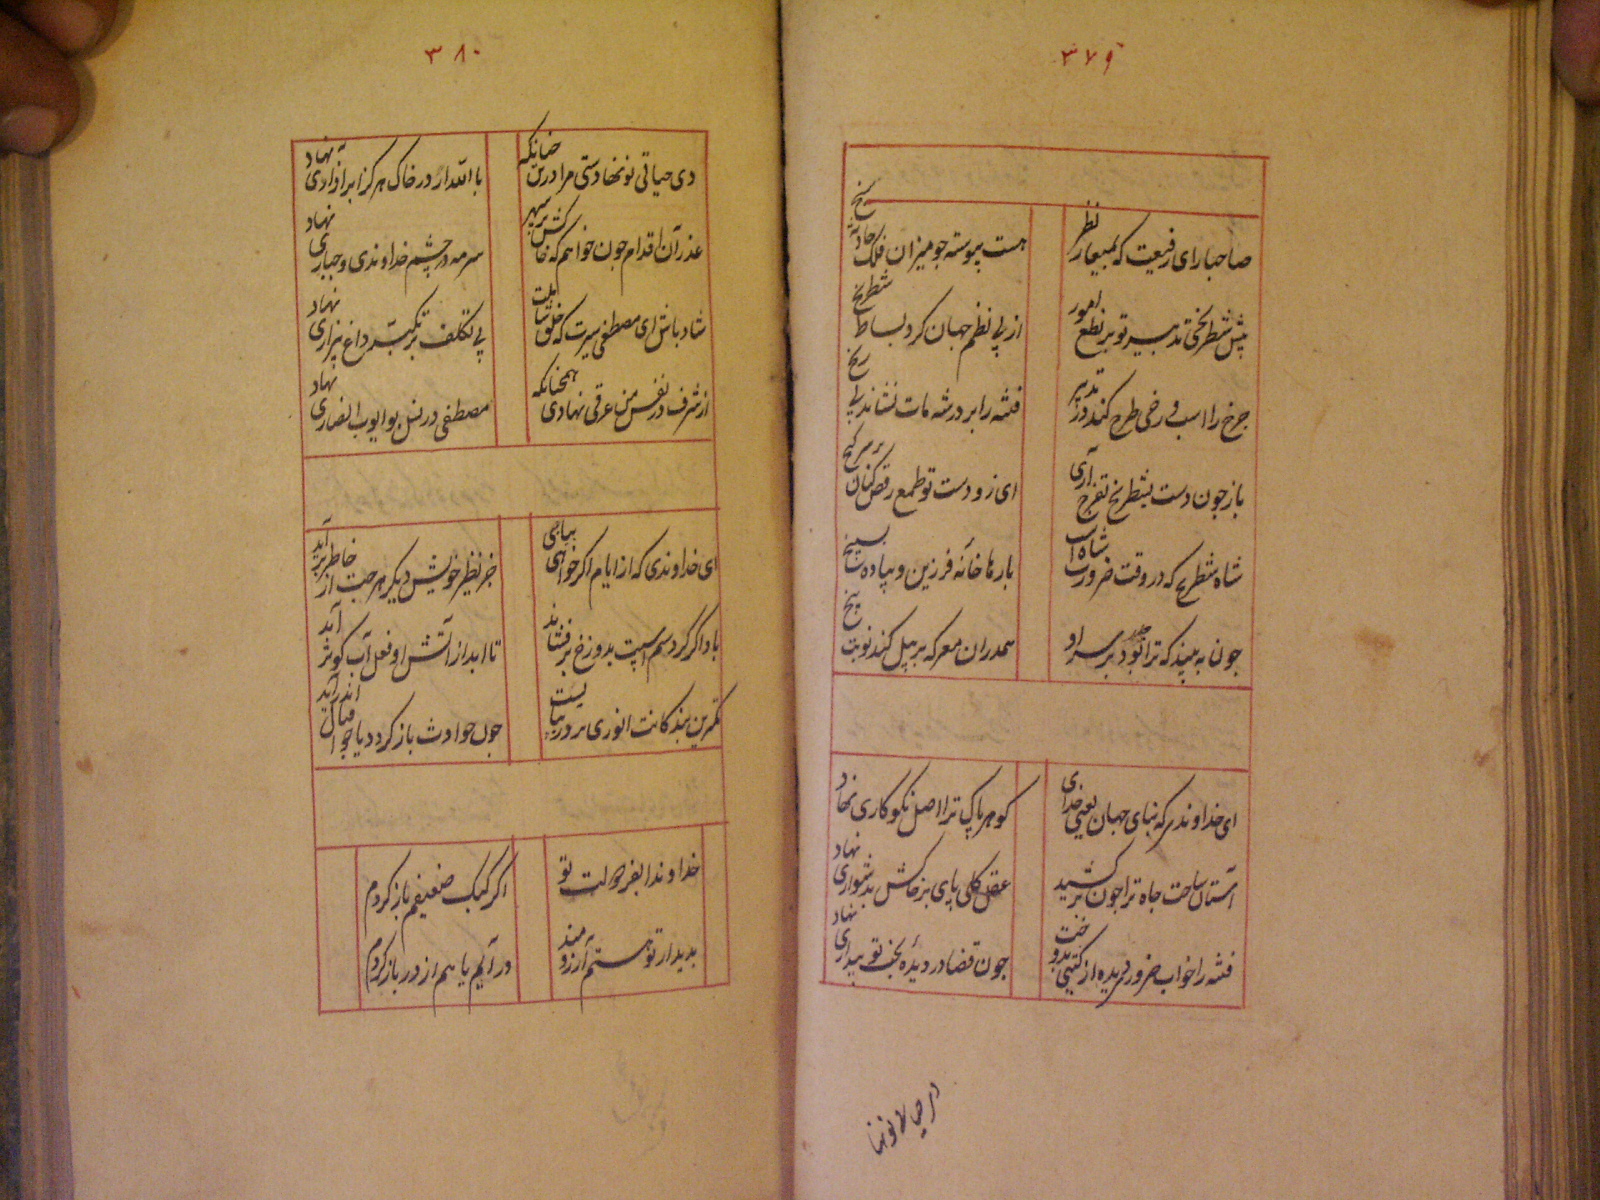 ۳۷۹
صاحبا رای رفیعت که بمعیار نظر
هست پیوسته جو میزان فلک حادثه سنج
پیش شطرنجی تدبیر تو بر نطع امور
از پی نظم جهان کرد بساط شطرنج
جرخ را اسب و رخی طرح کند در تدبیر
فتنه را بر در شه مات نشاند بی رنج
باز جون دست بشطرنج تفرج آری
ای ز و دست تو طمع رقص کنان بر سر کنج
شاه شطرنج که در وقت ضرورت شاه است
بارها خانه فرزین و پیاده
جون به بیند که ترا بر سر او
همدران معرکه بر پیل کند نوبت پنج
ای خداوندی که بنای جهان یعنی خدای
کوهر پاک ترا اصل نکوکاری نهاد
آستان ساحت جاه ترا جون بر کشید
عقل کلی پای بر خاکش بدشواری نهاد
فتنه را خواب ضرور دیده از کیتی بدوخت
جون قضا در دیده بخت تو بیداری نهاد
۳۸۰
دی حیاتی نو نهادستی مرا در تن جنانکه
با الله ار در خاک هرکز ابر آزادی نهاد
عذر آن اقدام جون خواهم که خاکش بر سپهر
سرمه در چشم خداوندی و جباری نهاد
شاد باش ای مصطفی سیرت که خلق شاملت
بی تکلف بر تکبر داغ بیزاری نهاد
از شرف در نفس من عرقی نهادی همجنانکه
مصطفی در نسل بو ایوب انصاری نهاد
ای خداوندی که از ایام اکر خواهی بیابی
جز نظیر خویش دیکر هرجت از خاطر بر آید
باد اکر کرد سم اسپت بدوزخ بر فشاند
تا ابد از آتش او فعل آب کوثر آید
کمترین بندکانت انوری بر در بپایست
جون حوادث باز کردد یا جو اقبال اندر آید
خداوندا بفر دولت تو
اکر کبک ضعیفم باز کردم
بدیدار تو هستم آرزومند
در آیم یا هم از در باز کردم